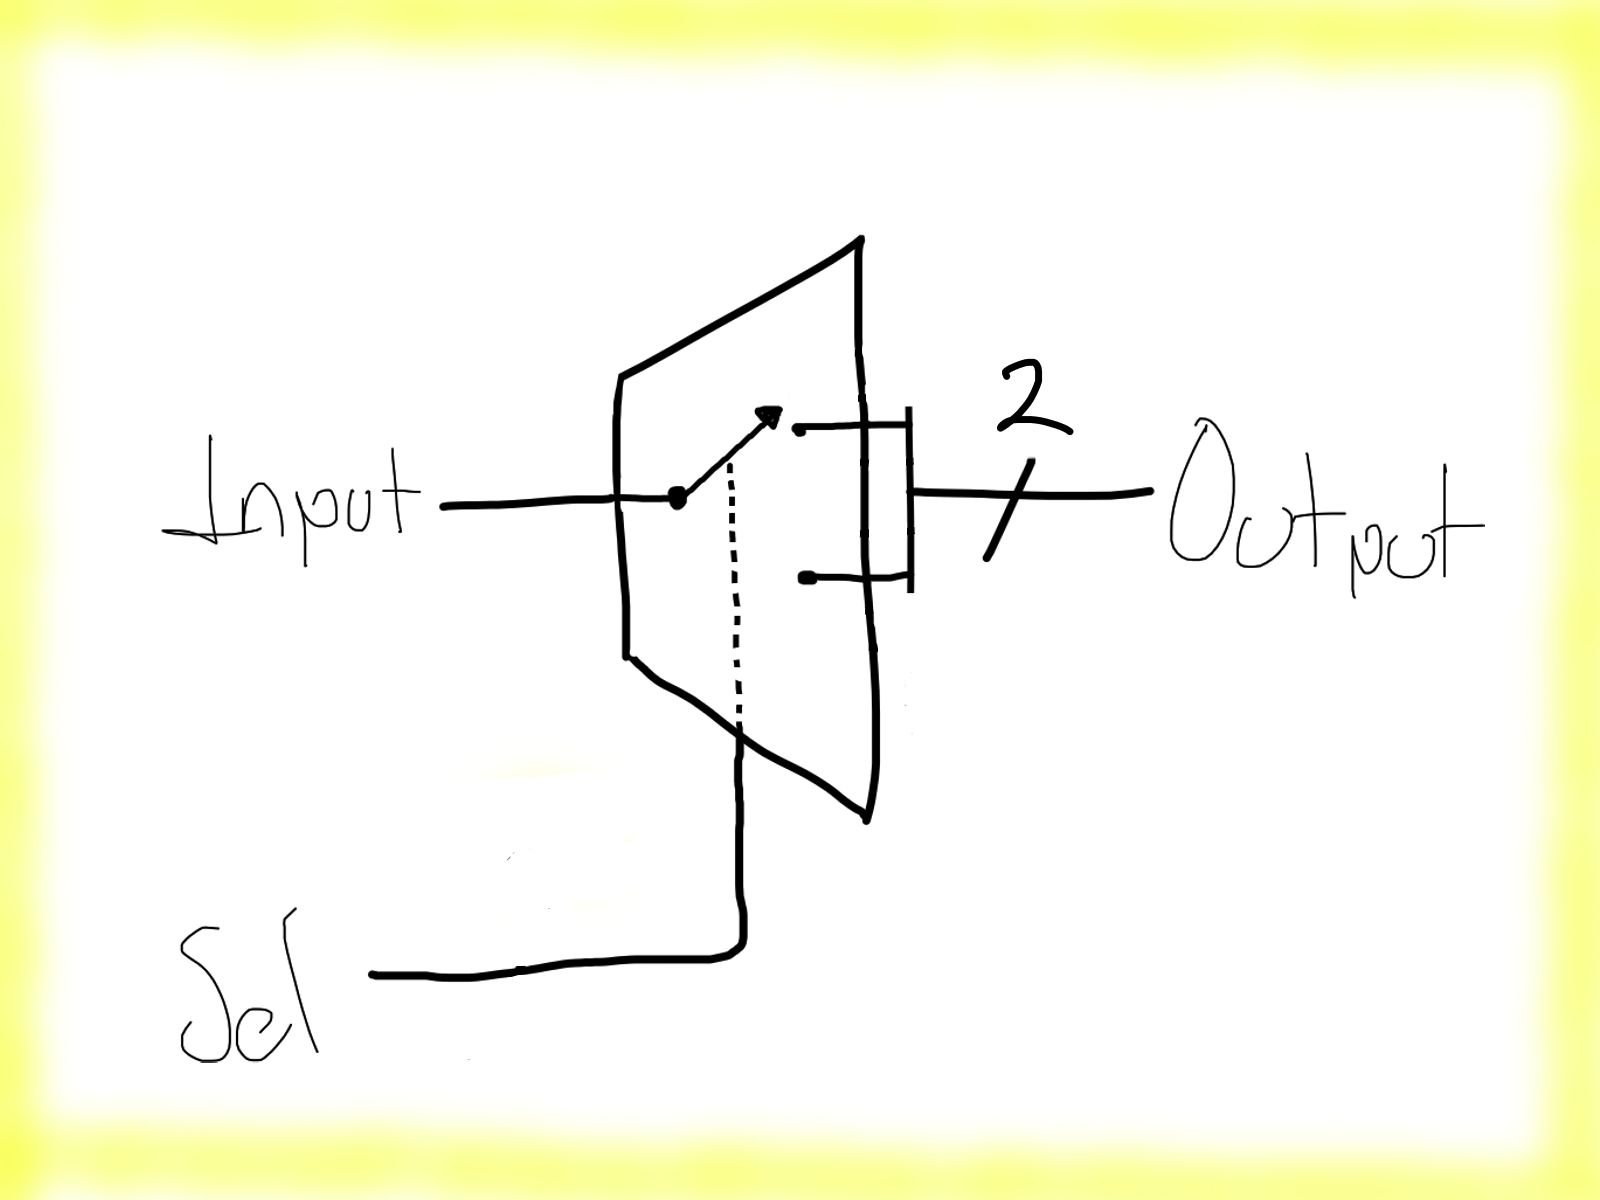 2
Input
Output
Sel